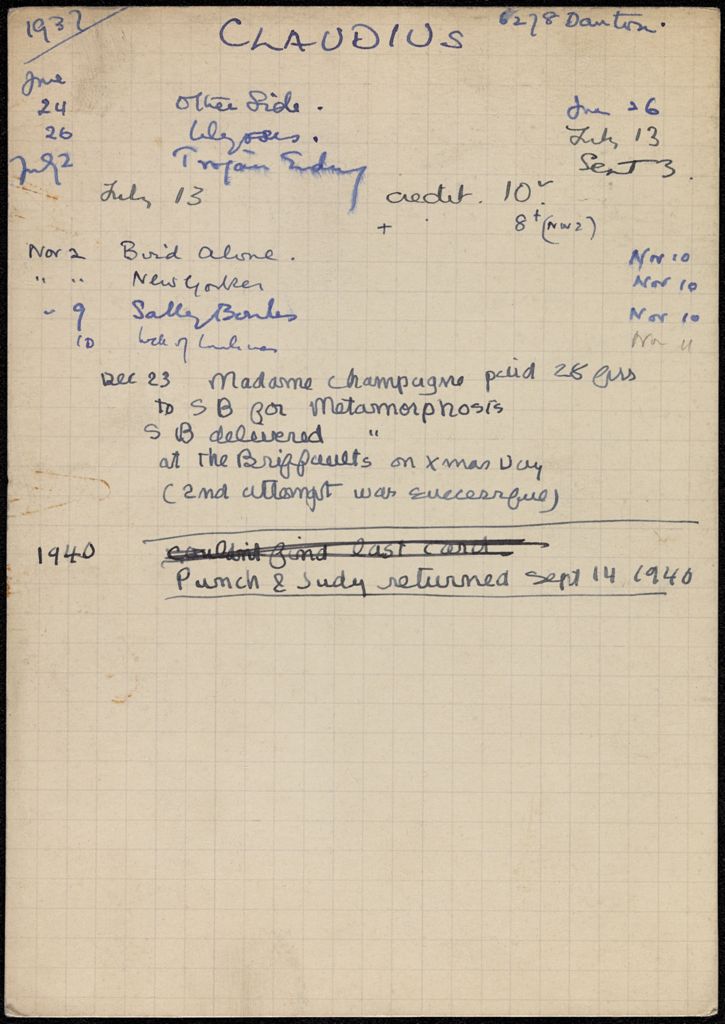 1937 CLAUDIUS 6278 Danton.
June
24 Other Side. Jun 26
26 Ulysses. July 13
July 2 Trojan Ending Sept 3.
July 13 credit. 10
+ 8+ (NW2)
Nov 2 Bird alone. Nov 10
" " New Yorker Nov 10
" 9 Sally Bowles Nov 10
10 Nov 11
Dec 23 Madame Champagne paid 28 frs
to S B for Metamorphosis
S B delivered "
at the Briffaults on Xmas Day
(2nd attempt was successful)
1940 couldn't find last card.
Punch & Judy returned Sept 14 1940